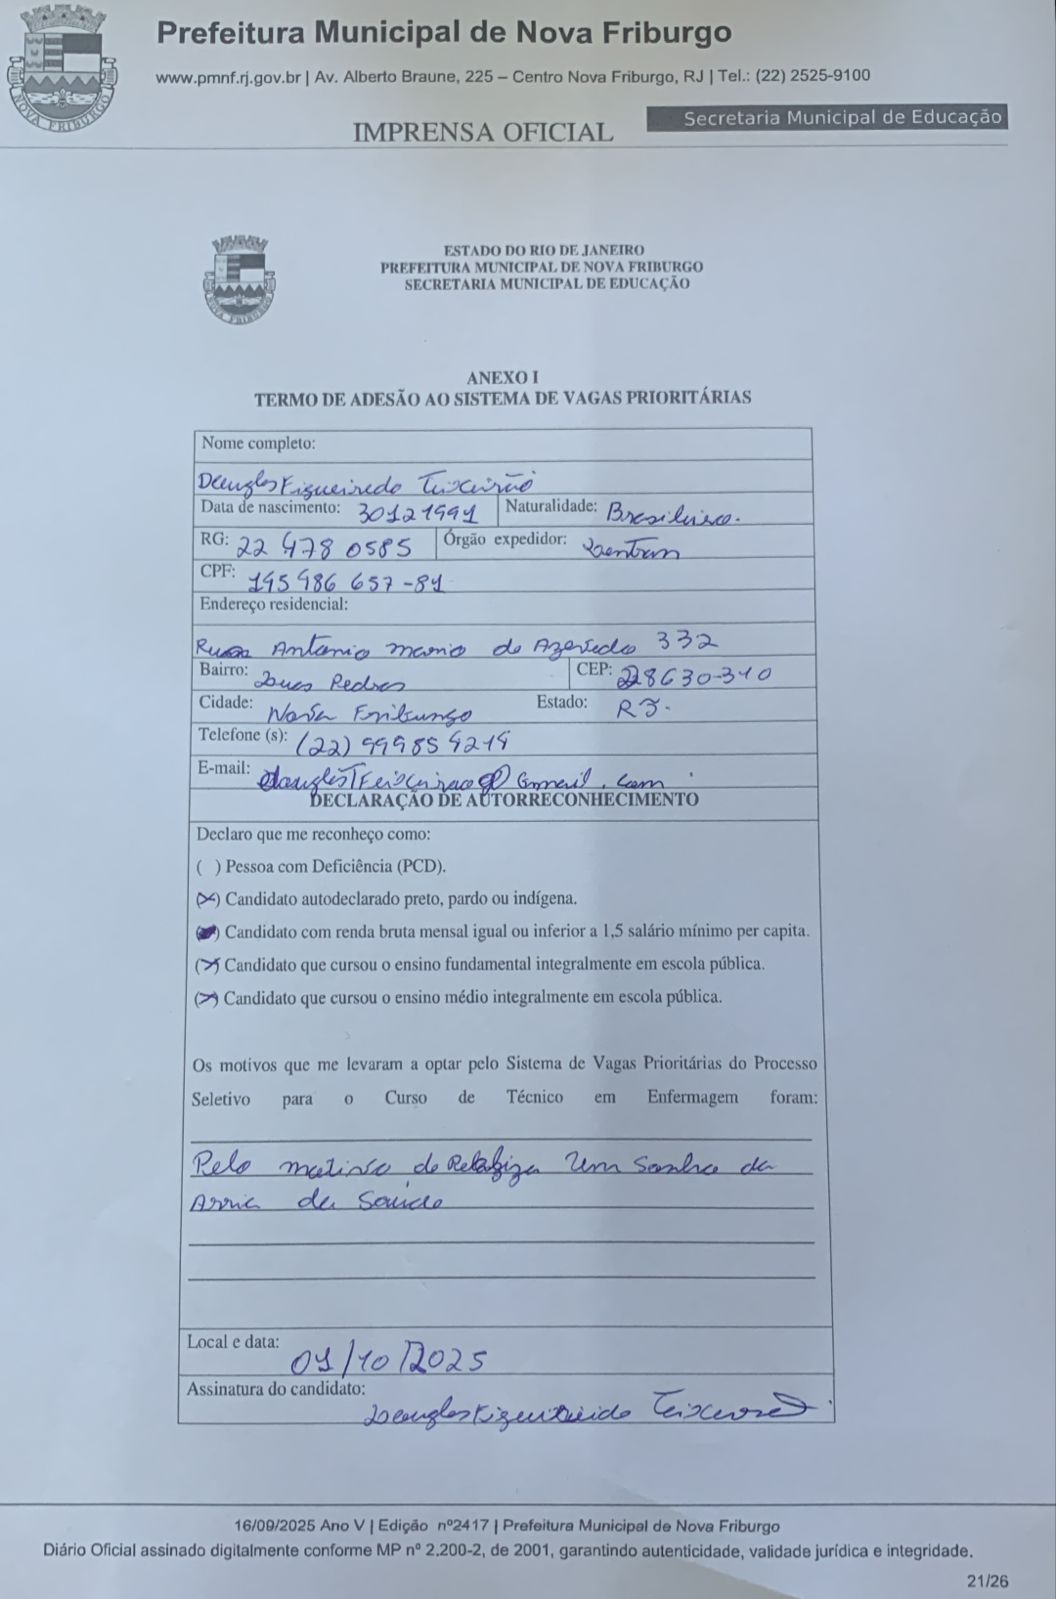 Prefeitura Municipal de Nova Friburgo
www.pmnf.rj.gov.br | Av. Alberto Braune, 225 – Centro Nova Friburgo, RJ | Tel.: (22) 2525-9100
Secretaria Municipal de Educação
IMPRENSA OFICIAL
NOVA FRIBURGO
ESTADO DO RIO DE JANEIRO
PREFEITURA MUNICIPAL DE NOVA FRIBURGO
SECRETARIA MUNICIPAL DE EDUCAÇÃO
ANEXO I
TERMO DE ADESÃO AO SISTEMA DE VAGAS PRIORITÁRIAS
Nome completo:
Douglas Figueiredo Teixeirão
Data de nascimento: 30121991 Naturalidade: Brasileiro.
RG: 22 478 0585 Órgão expedidor: Detran
CPF: 145 986 657-81
Endereço residencial:
Rua Antonio Mario de Azevedo 332
Bairro: Duas Pedras CEP: 28630-310
Cidade: Nova Friburgo Estado: RJ.
Telefone (s): (22) 99985 4214
E-mail: @ Gmail.com
DECLARAÇÃO DE AUTORRECONHECIMENTO
Declaro que me reconheço como:
( ) Pessoa com Deficiência (PCD).
(X) Candidato autodeclarado preto, pardo ou indígena.
( ) Candidato com renda bruta mensal igual ou inferior a 1,5 salário mínimo per capita.
(X) Candidato que cursou o ensino fundamental integralmente em escola pública.
(X) Candidato que cursou o ensino médio integralmente em escola pública.
Os motivos que me levaram a optar pelo Sistema de Vagas Prioritárias do Processo
Seletivo para o Curso de Técnico em Enfermagem foram:
Pelo motivo de um sonho da
da Saúde
Local e data: 01/10/2025
Assinatura do candidato: Douglas Figueiredo
16/09/2025 Ano V | Edição nº2417 | Prefeitura Municipal de Nova Friburgo
Diário Oficial assinado digitalmente conforme MP nº 2.200-2, de 2001, garantindo autenticidade, validade jurídica e integridade.
21/26